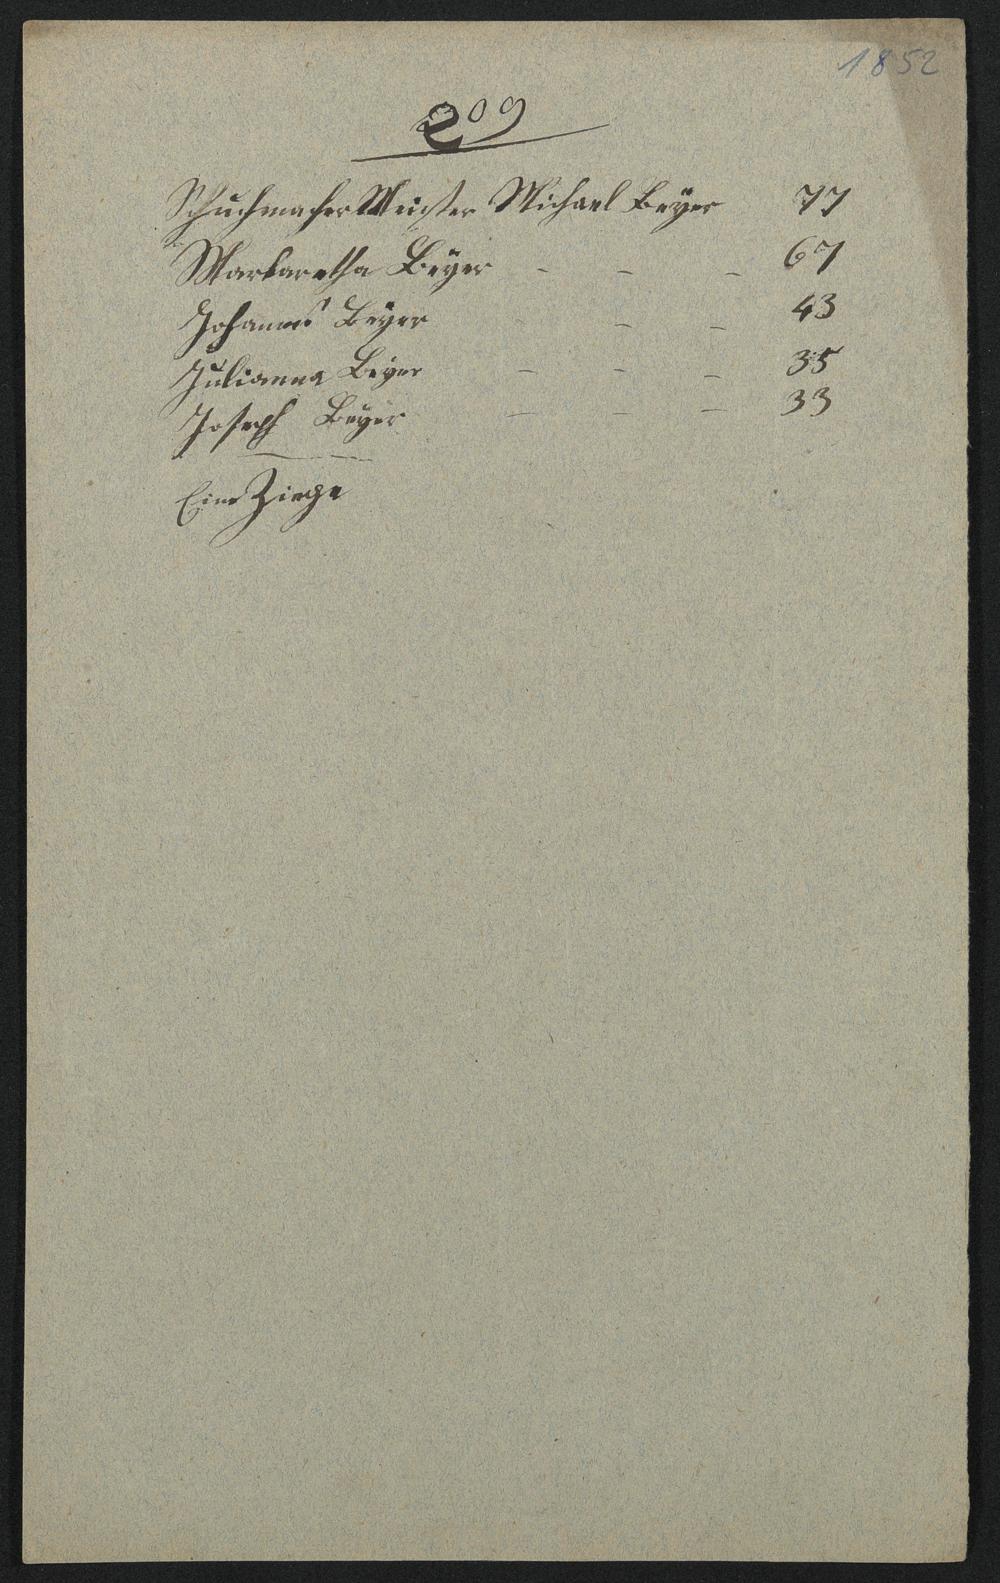 1852
209
Schuchmacher Meister Michael Beÿer 77
Markaretha Beÿer - - - 67
Johannes Beÿer - - 43
Julianna Beÿer - - - 35
Joseph Beÿer - - - 33
Eine Ziege